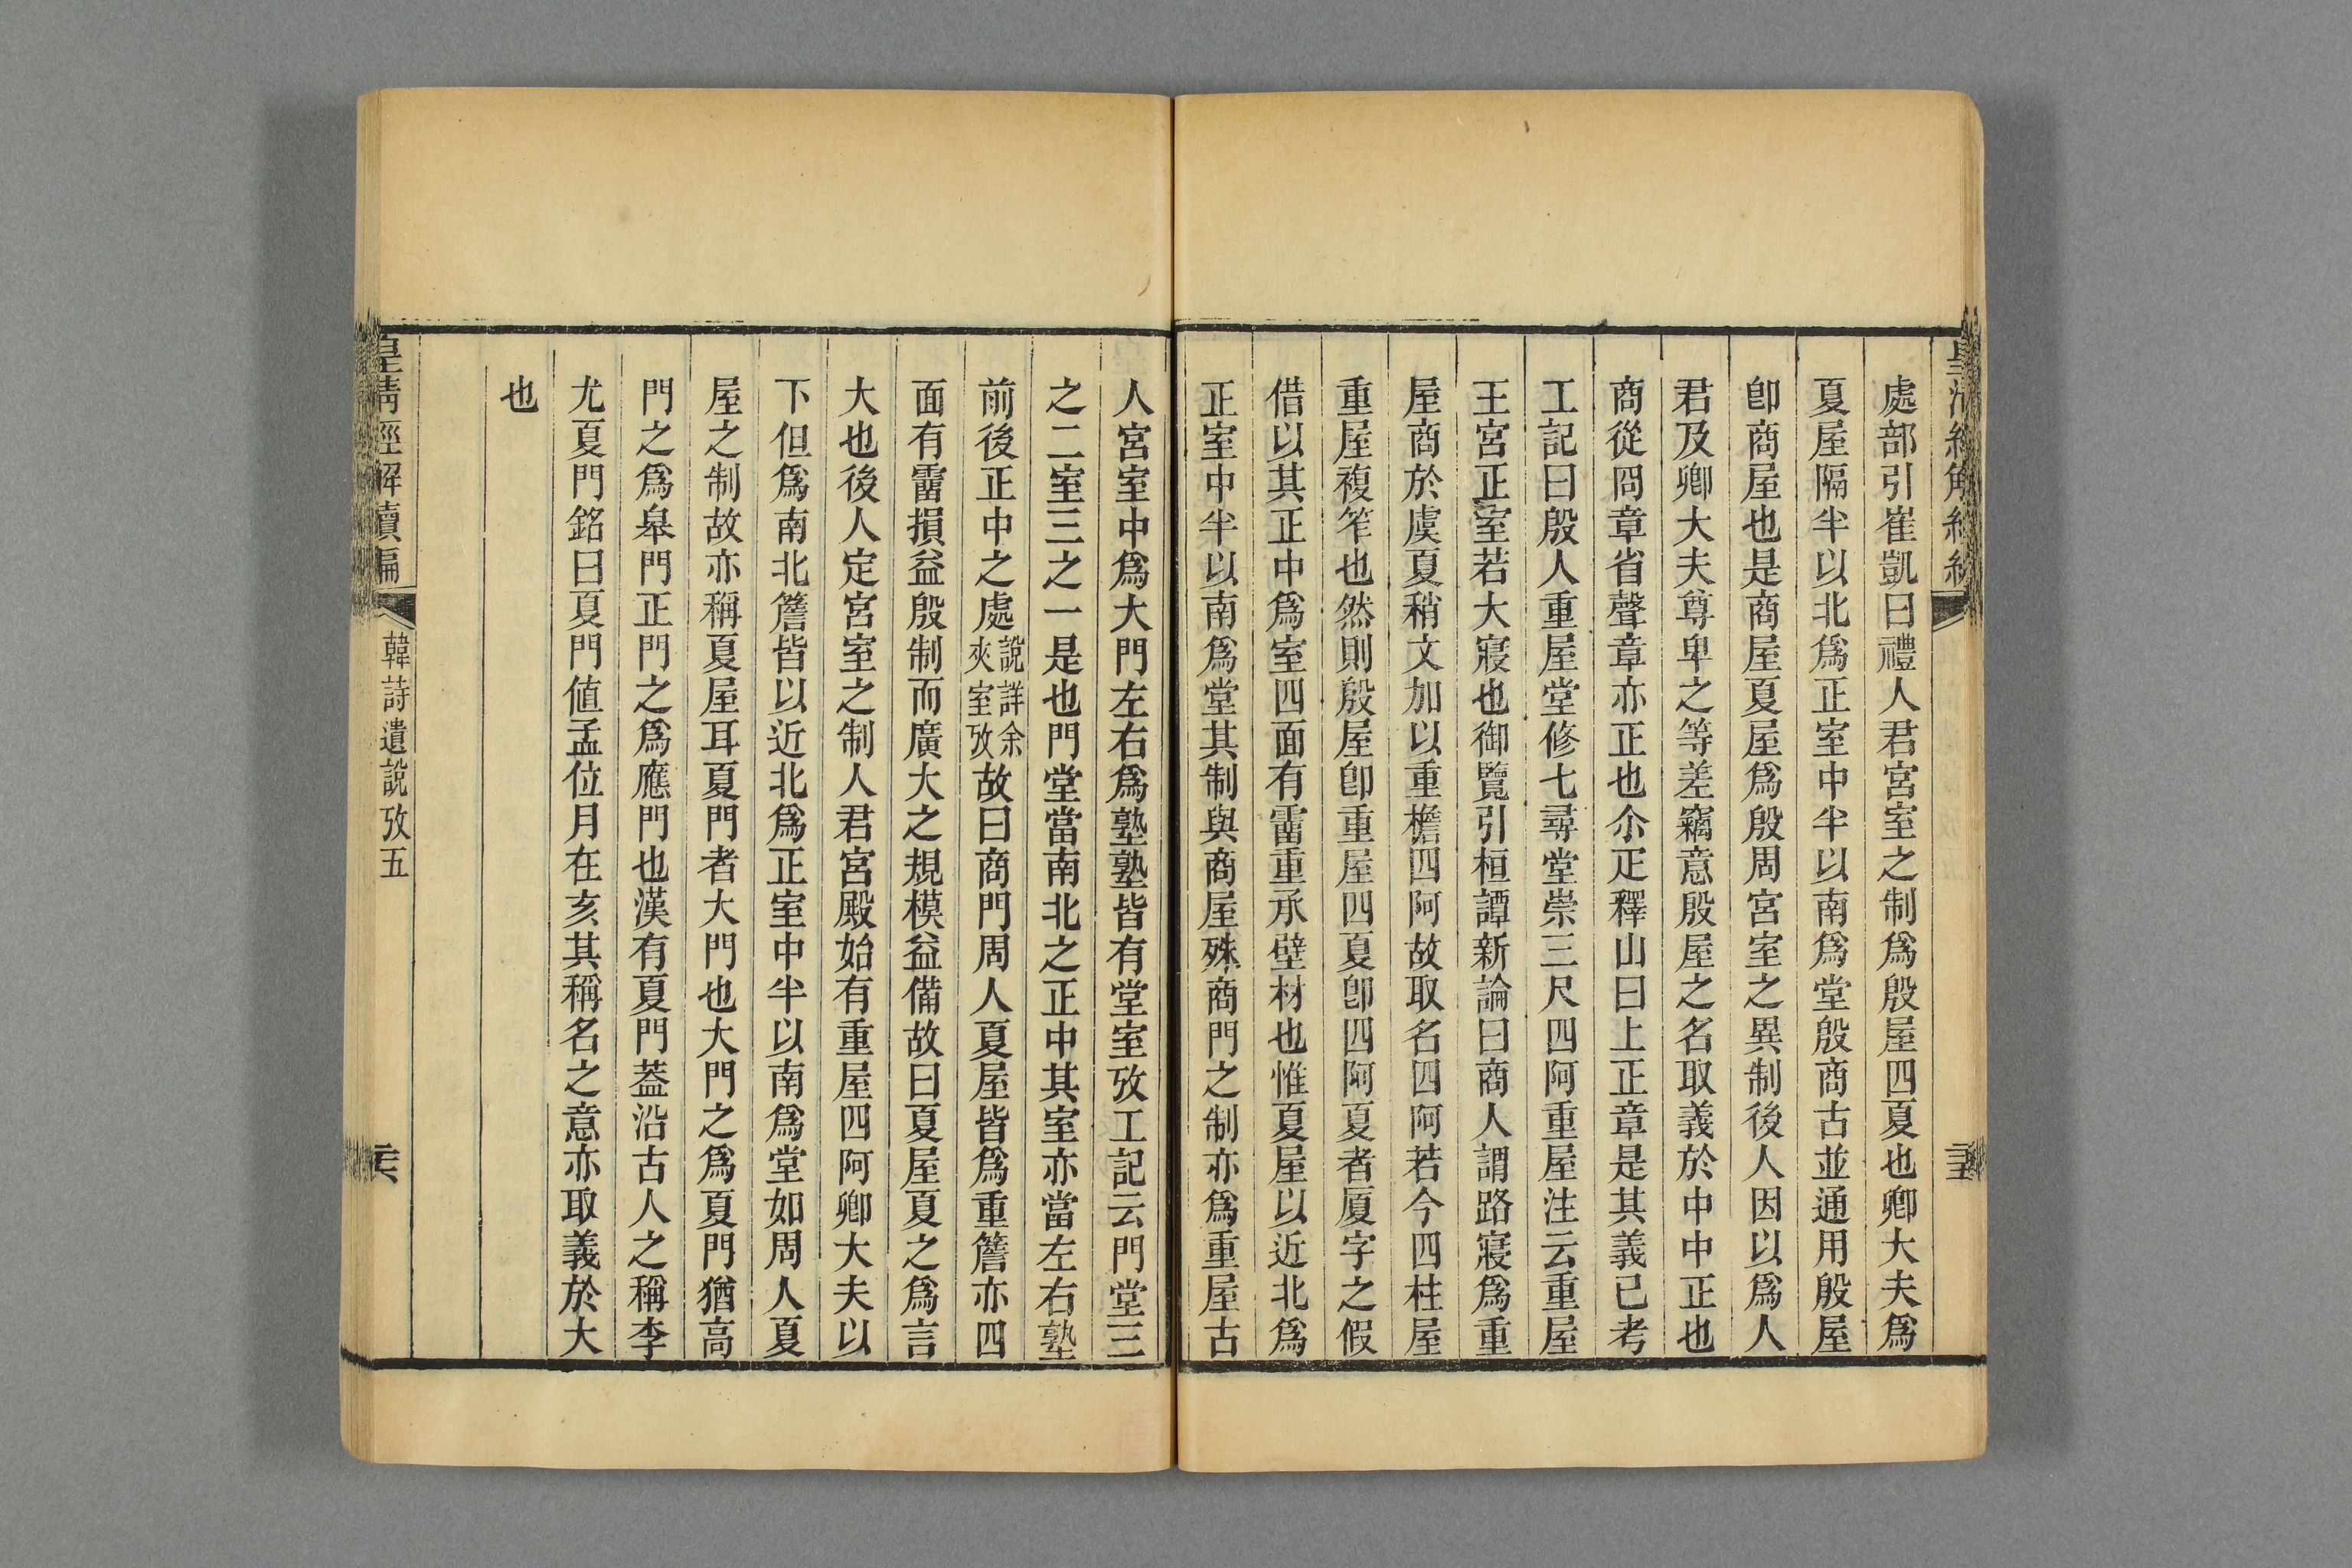 處部引崔凱曰禮人君宮室之制爲殷屋四夏也卿大夫爲
夏屋隔半以北爲正室中半以南爲堂殷商古並通用殷屋
卽商屋也是商屋夏屋爲殷周宮室之異制後人因以爲人
君及卿大夫尊卑之等差竊意殷屋之名取義於中中正也
商從冏章省聲章亦正也尒疋釋山曰上正章是其義已考
工記曰殷人重屋堂修七尋堂崇三尺四阿重屋注云重屋
王宮正室若大寢也御覽引桓譚新論曰商人謂路寢爲重
屋商於虞夏稍文加以重檐四阿故取名四阿若今四柱屋
重屋複笮也然則殷屋卽重屋四夏卽四阿夏者厦字之假
借以其正中爲室四面有霤重承壁材也惟夏屋以近北爲
正室中半以南爲堂其制與商屋殊商門之制亦爲重屋古
人宮室中爲大門左右爲塾塾皆有堂室攷工記云門堂三
之二室三之一是也門堂當南北之正中其室亦當左右塾
前後正中之處說詳余夾室攷故曰商門周人夏屋皆爲重簷亦四
面有霤損益殷制而廣大之規模益備故曰夏屋夏之爲言
大也後人定宮室之制人君宮殿始有重屋四阿卿大夫以
下但爲南北簷皆以近北爲正室中半以南爲堂如周人夏
屋之制故亦稱夏屋耳夏門者大門也大門之爲夏門猶高
門之爲皋門正門之爲應門也漢有夏門蓋沿古人之稱李
尤夏門銘曰夏門値孟位月在亥其稱名之意亦取義於大
也
皇清經解續編
韓詩遺說攷五